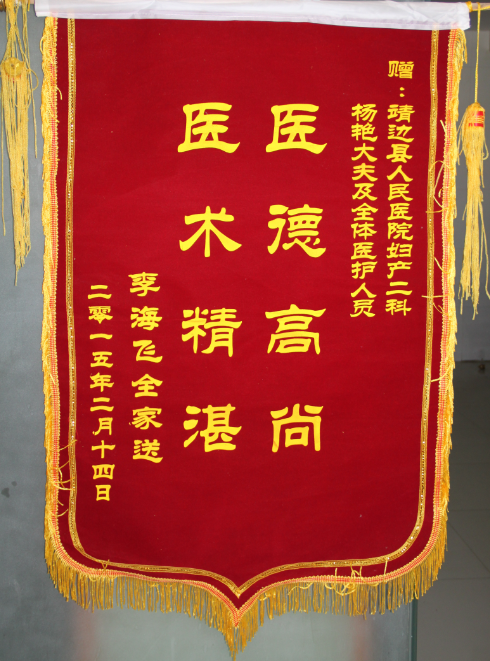 赠：靖边县人民医院妇产二科
杨艳大夫及全体医护人员
医德高尚
医术精湛
李海飞全家送
二零一五年二月十四日